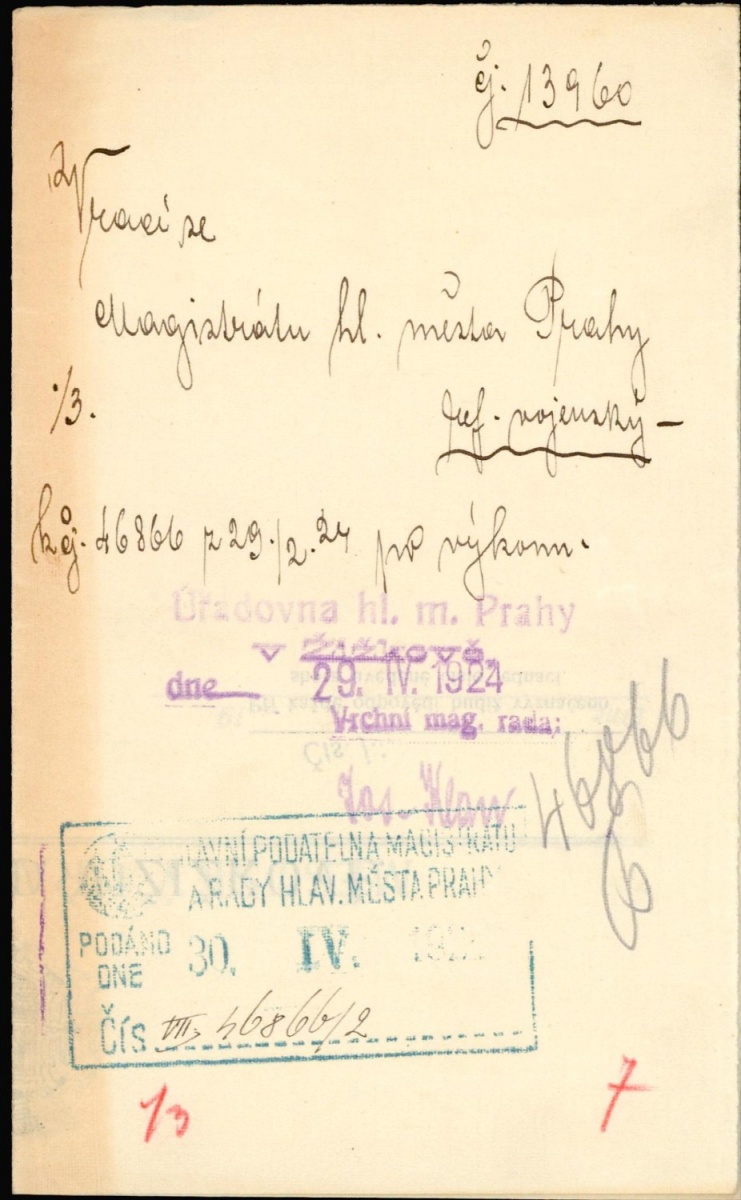 čj. 13960
Vrací se
Magistrátu hl. města Prahy
ref. vojenský-
1/3.
k čj. 46866 z 29./2. 24 po výkonu.
Úřadovna hl. m. Prahy
v Žižkově,
dne 29. IV. 1924
Vrchní mag. rada:
46866
LAVNÍ PODATELNA MAGISTRÁTU
A RADY HLAV. MĚSTA PRAHY
PODÁNO
DNE 30. IV.
Čís VII, 46866/2
1/3
7